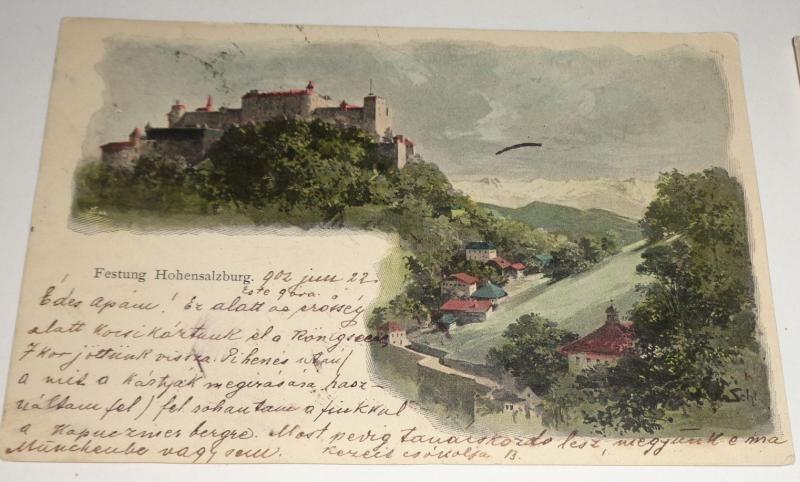 Festung Hohensalzburg. 902 jun 22.
Este 9 óra.
Édes apám! Ez alatt az erősség
alatt kocsikáztunk el a Königsee
7 kor jöttünk vissza. Pihenés után (
a mit a kártyák megirására hasz
náltam fel) fel sohantam a fiukkal
a Kapuczinerbergre. Most pedig tanácskozás lesz, megyünk e ma
Münchenbe vagy sem. Kezeit csókolja B.
Schl